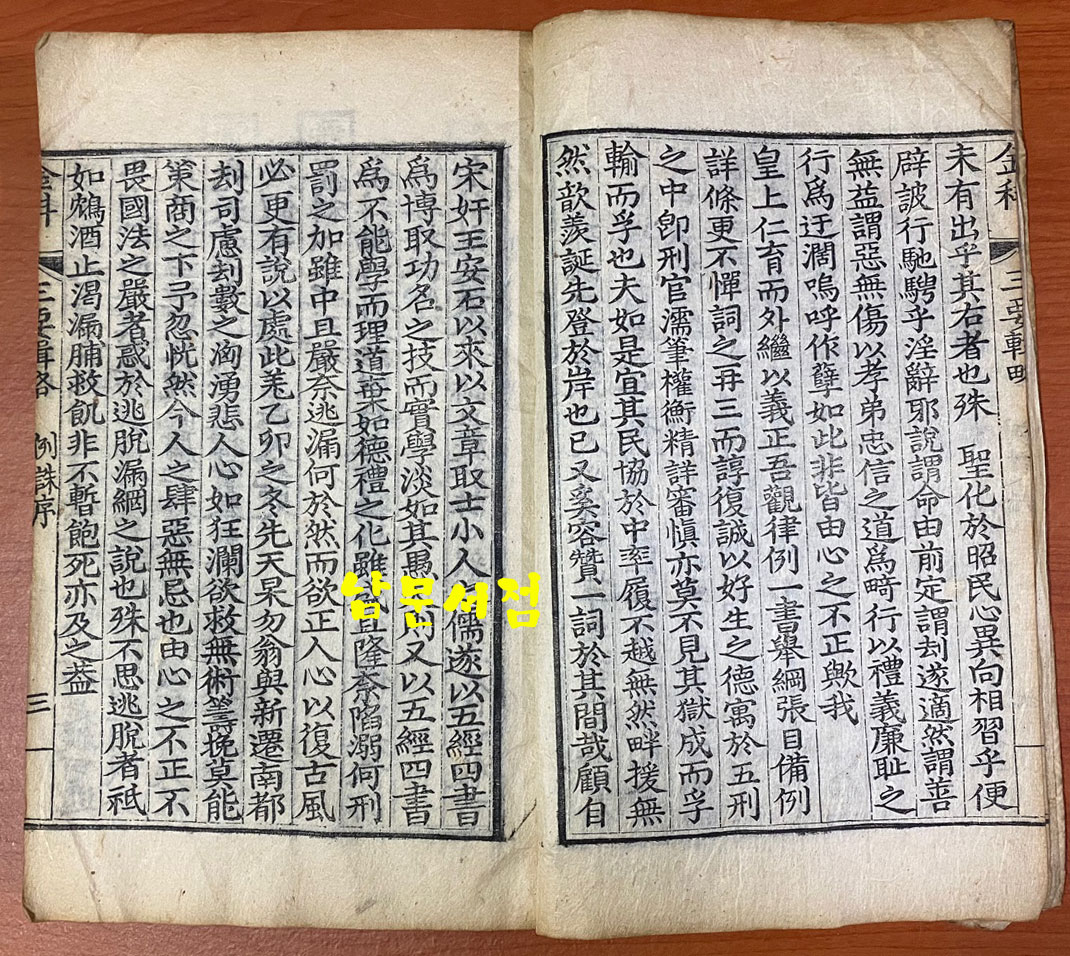 金科 三要輯略
未有出乎其右者也殊 聖化於昭民心異向相習乎便
辟詖行馳騁乎淫辭邪說謂命由前定謂刦遂適然謂善
無益謂惡無傷以孝弟忠信之道爲畸行以禮義廉耻之
行爲迂濶嗚呼作孽如此非皆由心之不正歟我
皇上仁育而外繼以義正吾觀律例一書舉綱張目備例
詳條更不憚詞之再三而諄復誠以好生之德寓於五刑
之中卽刑官濡筆權衡精詳審愼亦莫不見其獄成而孚
輸而孚也夫如是宜其民協於中率履不越無然畔援無
然歆羨誕先登於岸也已又奚容贊一詞於其間哉顧自
宋奸王安石以來以文章取士小人儒遂以五經四書
爲博取功名之技而實學淡如其愚 則又以五經四書
爲不能學而理道棄如德禮之化雖 且隆奈陷溺何刑
罰之加雖中且嚴奈逃漏何於然而欲正人心以復古風
必更有說以處此羌乙卯之冬先天杲勿翁與新遷南都
刦司慮刦數之洶湧悲人心如狂瀾欲救無術籌挽莫能
策商之下予忽恍然今人之肆惡無忌也由心之不正不
畏國法之嚴者惑於逃脫漏網之說也殊不思逃脫者祇
如鴆酒止渴漏脯救飢非不暫飽死亦及之葢
金科 三要輯略 例誅序 三
남문서점